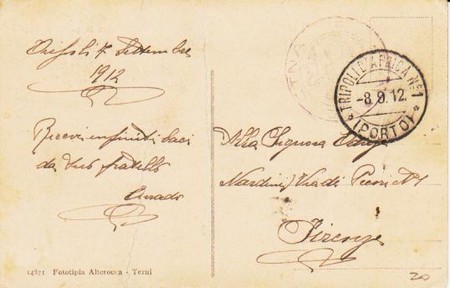 Tripoli 7 Settembre
1912
Ricevi infiniti baci
da tuo fratello
Amado
Alla Signora
Nardini Via di
Firenze
TRIPOLI D'AFRICA Nº1
-8.9.12.
* (PORTO) *
14871 Fototipia Alterocca - Terni
20